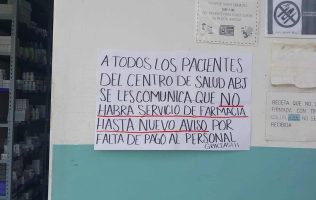 A TODOS LOS PACIENTES
DEL CENTRO DE SALUD ABJ
SE LES COMUNICA QUE NO
HABRA SERVICIO DE FARMACIA
HASTA NUEVO AVISO POR
FALTA DE PAGO AL PERSONAL
GRACIAS!!!
RECETA QUE NO
FIRMADA CON TINTA
NO SE
RECIBIDA